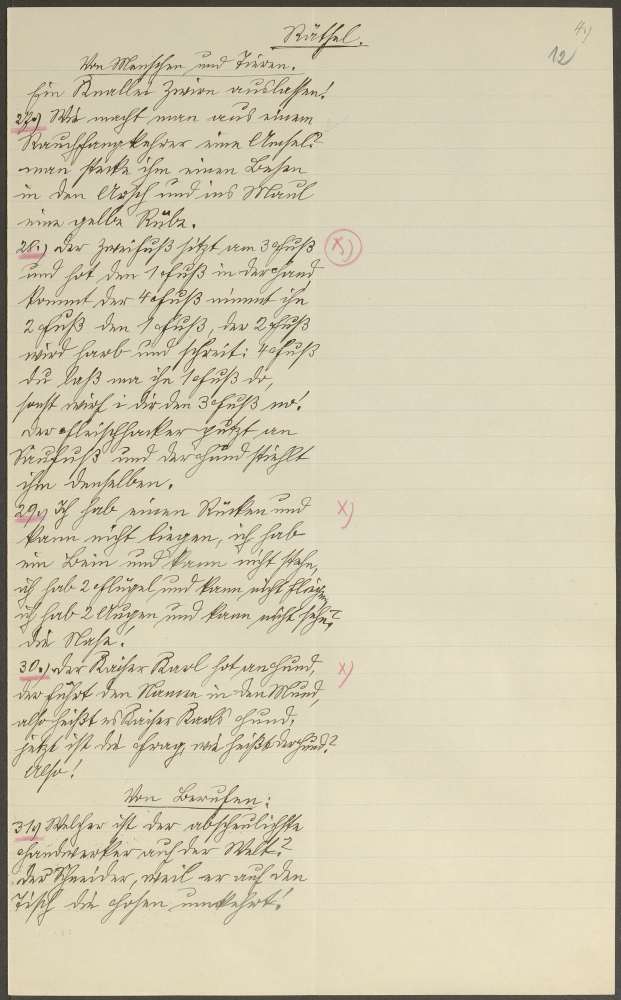 4.)
12
Räthsel.
Von Menschen und Tieren.
Ein Knallei Zwirn auslassen!
27.) Wie macht man aus einem
Rauchfangkehrer eine Amsel?
man steckt ihm einen Besen
in den Arsch und ins Maul
eine gelbe Rübe.
28.) Der Zweifuß sitzt am 3 Fuß x)
und hat den 1 Fuß in der Hand
kommt der 4 Fuß nimmt ihn
2 Fuß den 1 Fuß, der 2 Fuß
wird harb und schreit: 4 Fuß
du laß ma ihn 1 Fuß do,
sonst wirf i dir den 3 Fuß no!
Der Fleischhacker putzt an
Saufuß und der Hund stiehlt
ihm denselben.
29.) Ich hab einen Rücken und x)
kann nicht liegen, ich hab
ein Bein und kann nicht stehn,
ich hab 2 Flügel und kann nicht fliegen
ich hab 2 Augen und kann nicht sehn?
Die Nase!
30.) Der Kaiser Karl hat an Hund, x)
der führt den Namen in den Mund,
also heißt es Kaiser Karls Hund,
jetzt ist die Frag, wie heißt der Hund?
Also!
Von Berufen:
31.) Welcher ist der abscheulichste
Handwerker auf der Welt?
Der Schneider, weil er auf den
Tisch die Hosen umkehrt!